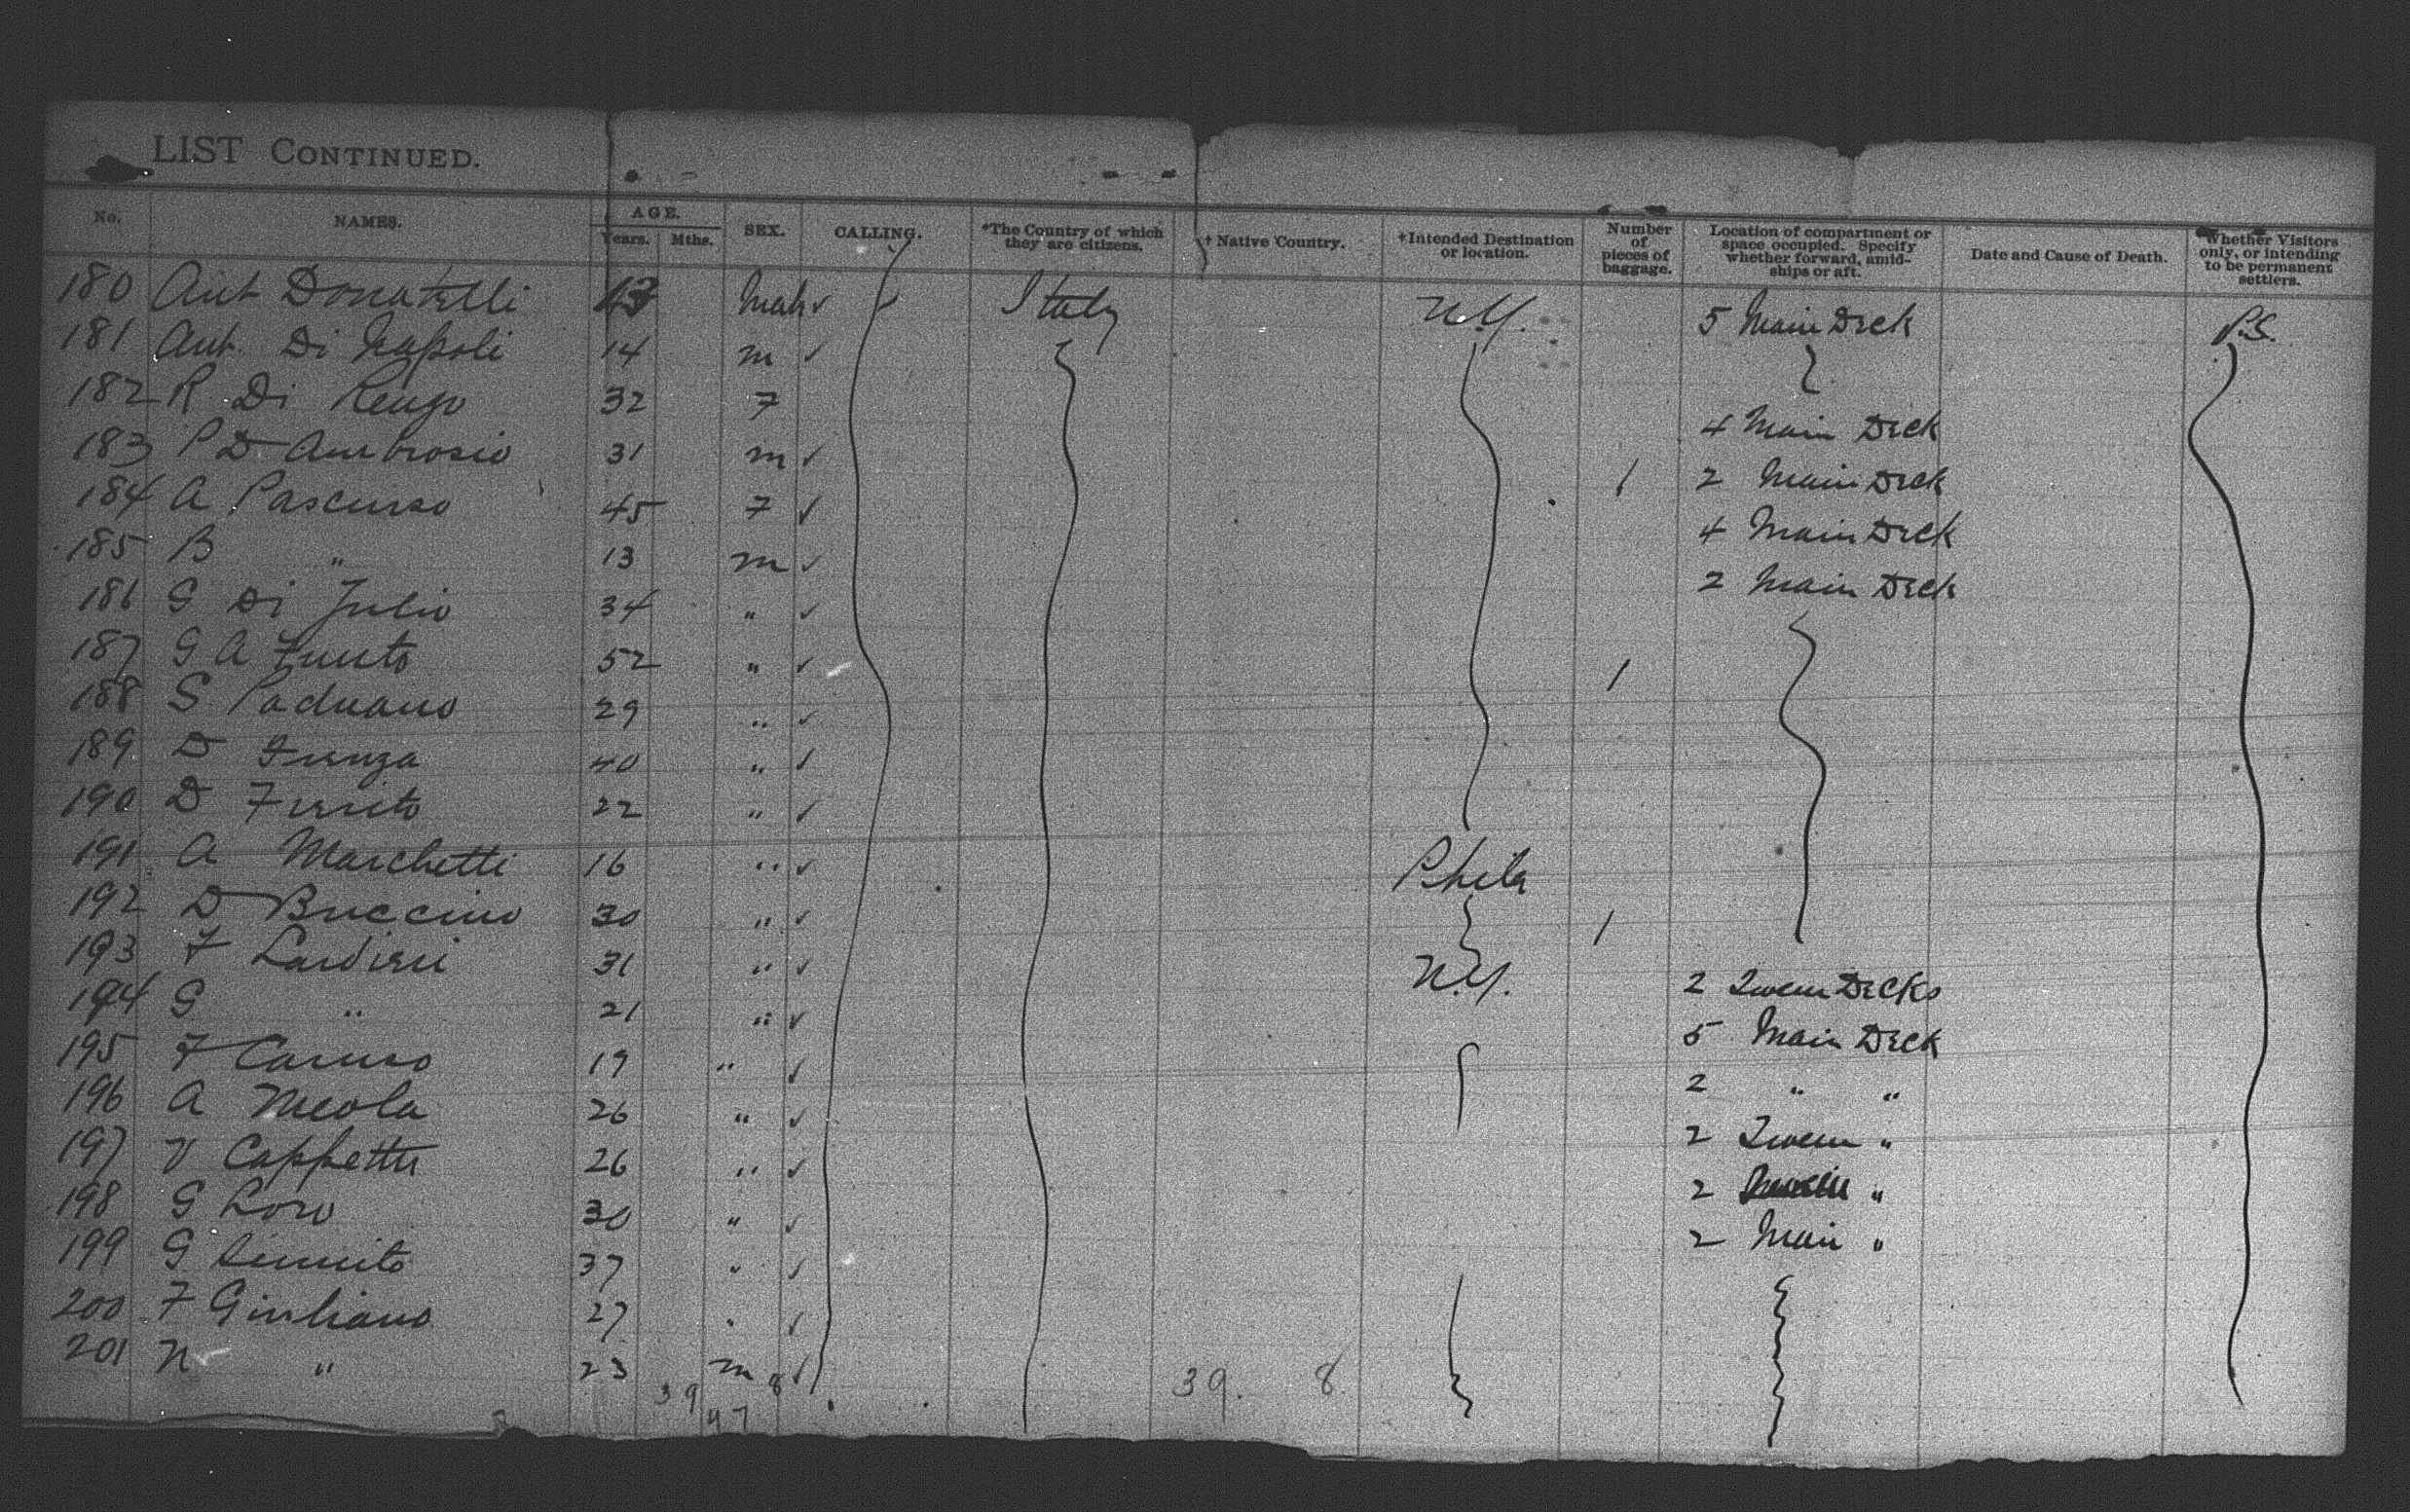 LIST CONTINUED.
No. NAMES. AGE. Years. Mths. SEX. CALLING. *The Country of which they are citizens. † Native Country. †Intended Destination or location. Number of pieces of baggage. Location of compartment or space occupied. Specify whether forward, amidships or aft. Date and Cause of Death. Whether Visitors only, or intending to be permanent settlers.
180 Ant Donatelli Male ✓ Italy N.Y. 5 Main Deck P.S.
181 Ant. Di Napoli 14 m ✓
182 R Di 32 F 4 Main Deck
183 P D Ambrosio 31 m ✓ 1 2 Main Deck
184 A 45 F ✓ 4 Main Deck
185 B " 13 m ✓ 2 Main Deck
186 G Di Julio 34 " ✓
187 G A 52 " ✓ 1
188 S Paduano 29 " ✓
189 D 40 " ✓
190 D 22 " ✓
191 A Marchetti 16 " ✓ Phila
192 D Buccino 30 " ✓ 1
193 F 31 " ✓ N.Y. 2 Tween Decks
194 G " 21 " ✓ 5 Main Deck
195 F Caruso 19 " ✓ 2 " "
196 A Meola 26 " ✓ 2 Tween "
197 V 26 " ✓ 2 "
198 G 30 " ✓ 2 Main "
199 G 37 " ✓
200 F Giuliano 27 " ✓
201 N " 23 m ✓
39 8 39. 8
47